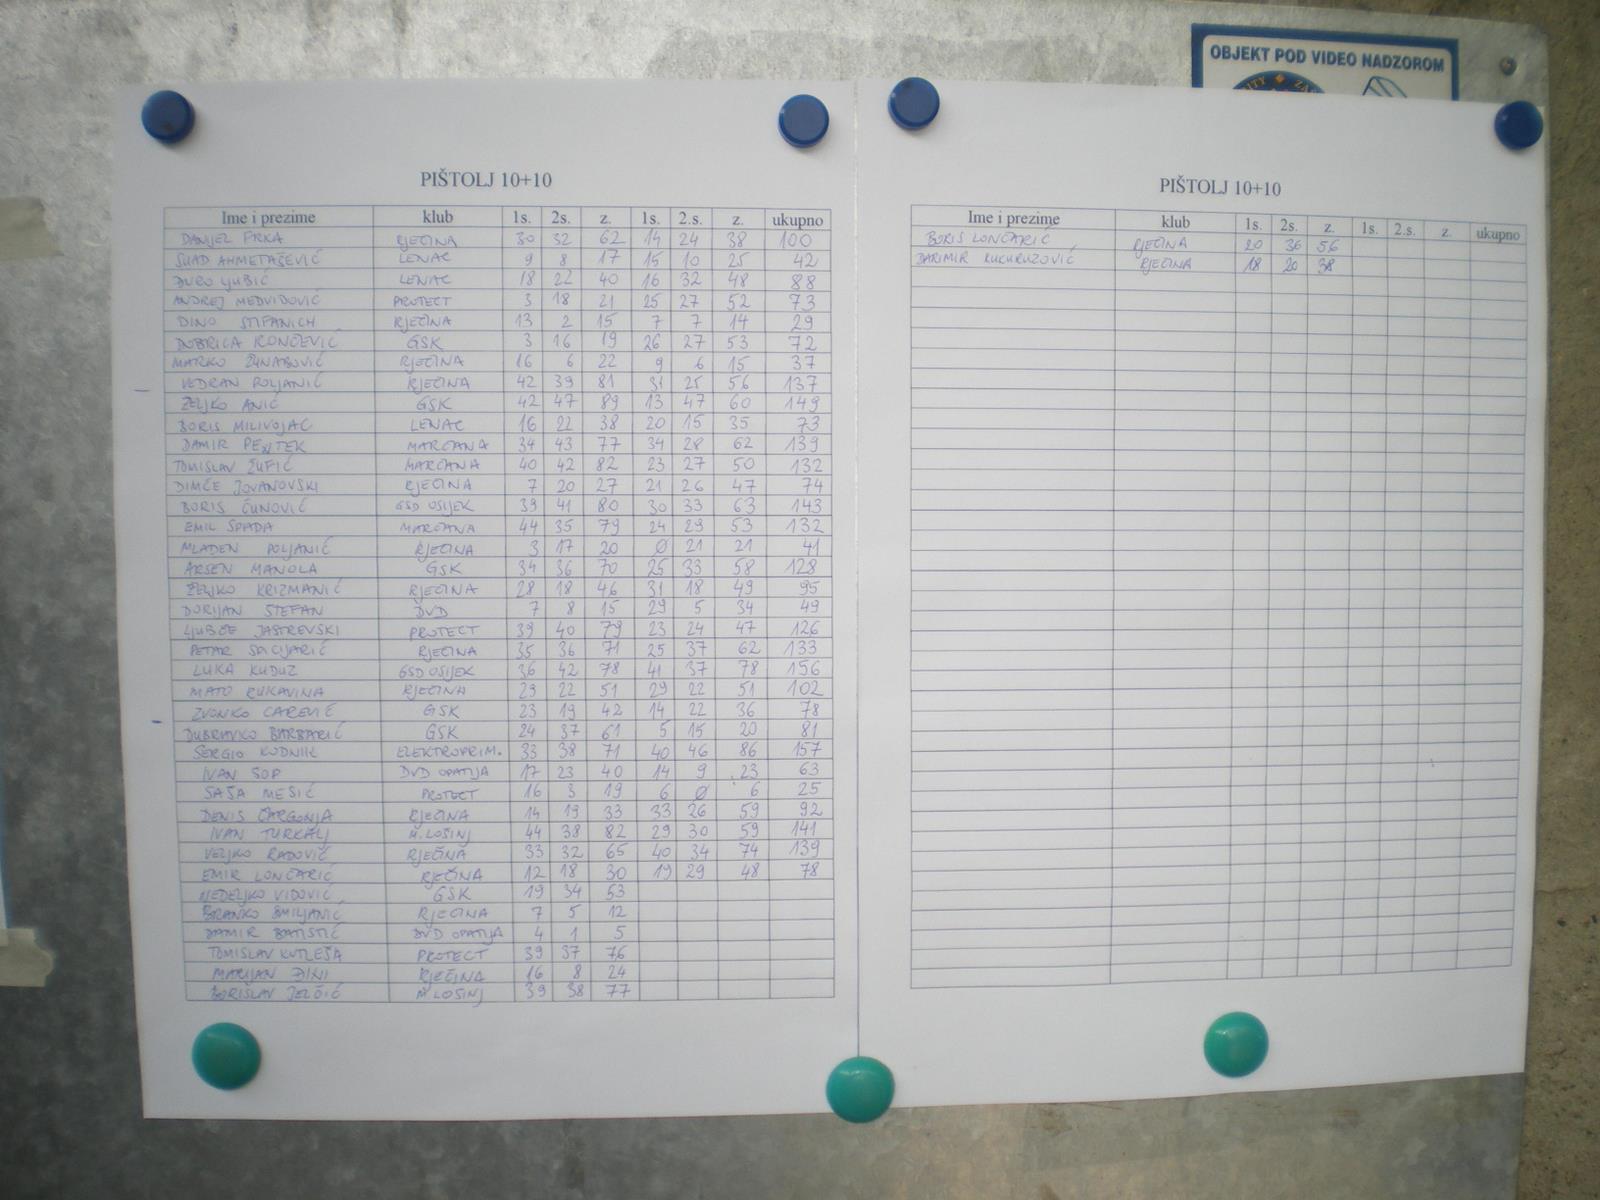 OBJEKT POD VIDEO NADZOROM
PIŠTOLJ 10+10
Ime i prezime klub 1s. 2s. z. 1s. 2.s. z. ukupno
DANJEL FRKA RJEČINA 30 32 62 14 24 38 100
SUAD AHMETAŠEVIĆ LENAC 9 8 17 15 10 25 42
ĐURO LJUBIĆ LENAC 18 22 40 16 32 48 88
ANDREJ MEDVIDOVIĆ PROTECT 3 18 21 25 27 52 73
DINO STIPANICH RJEČINA 13 2 15 7 7 14 29
DOBRICA RONČEVIĆ GSK 3 16 19 26 27 53 72
MARKO RJEČINA 16 6 22 9 6 15 37
VEDRAN POLJANIĆ RJEČINA 42 39 81 31 25 56 137
ŽELJKO ANIĆ GSK 42 47 89 13 47 60 149
BORIS MILIVOJAC LENAC 16 22 38 20 15 35 73
DAMIR MARČANA 34 43 77 34 28 62 139
TOMISLAV ŽUFIĆ MARČANA 40 42 82 23 27 50 132
DIMČE JOVANOVSKI RJEČINA 7 20 27 21 26 47 74
BORIS ČUNOVIĆ GSD OSIJEK 39 41 80 30 33 63 143
EMIL SPADA MARČANA 44 35 79 24 29 53 132
MLADEN POLJANIĆ RJEČINA 3 17 20 0 21 21 41
ARSEN MANOLA GSK 34 36 70 25 33 58 128
ŽELJKO KRIZMANIĆ RJEČINA 28 18 46 31 18 49 95
DORIJAN STEFAN DVD 7 8 15 29 5 34 49
LJUBČE JASTREVSKI PROTECT 39 40 79 23 24 47 126
PETAR RJEČINA 35 36 71 25 37 62 133
LUKA KUDUZ GSD OSIJEK 36 42 78 41 37 78 156
MATO RUKAVINA RJEČINA 29 22 51 29 22 51 102
ZVONKO CAREVIĆ GSK 23 19 42 14 22 36 78
DUBRAVKO BARBARIĆ GSK 24 37 61 5 15 20 81
SERGIO KODNIK ELEKTROPRIM. 33 38 71 40 46 86 157
IVAN SOP DVD OPATIJA 17 23 40 14 9 23 63
SAŠA MEŠIĆ PROTECT 16 3 19 6 0 6 25
DENIS ČARGONJA RJEČINA 14 19 33 33 26 59 92
IVAN TURKALJ M. LOŠINJ 44 38 82 29 30 59 141
VELJKO RADOVIĆ RJEČINA 33 32 65 40 34 74 139
EMIR LONČARIĆ RJEČINA 12 18 30 19 29 48 78
NEDELJKO VIDOVIĆ GSK 19 34 53
BRANKO SMILJANIĆ RJEČINA 7 5 12
DAMIR BATISTIĆ DVD OPATIJA 4 1 5
TOMISLAV KUTLEŠA PROTECT 39 37 76
MARIJAN RJEČINA 16 8 24
BORISLAV JELČIĆ M. LOSINJ 39 38 77
PIŠTOLJ 10+10
Ime i prezime klub 1s. 2s. z. 1s. 2.s. z. ukupno
BORIS LONČARIĆ RJEČINA 20 36 56
DARIMIR KUKURUZOVIĆ RJEČINA 18 20 38